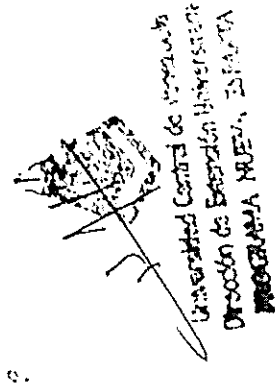 Universidad Central de Venezuela
Dirección de Extensión Universitaria
PROGRAMA NUEVA ESPARTA